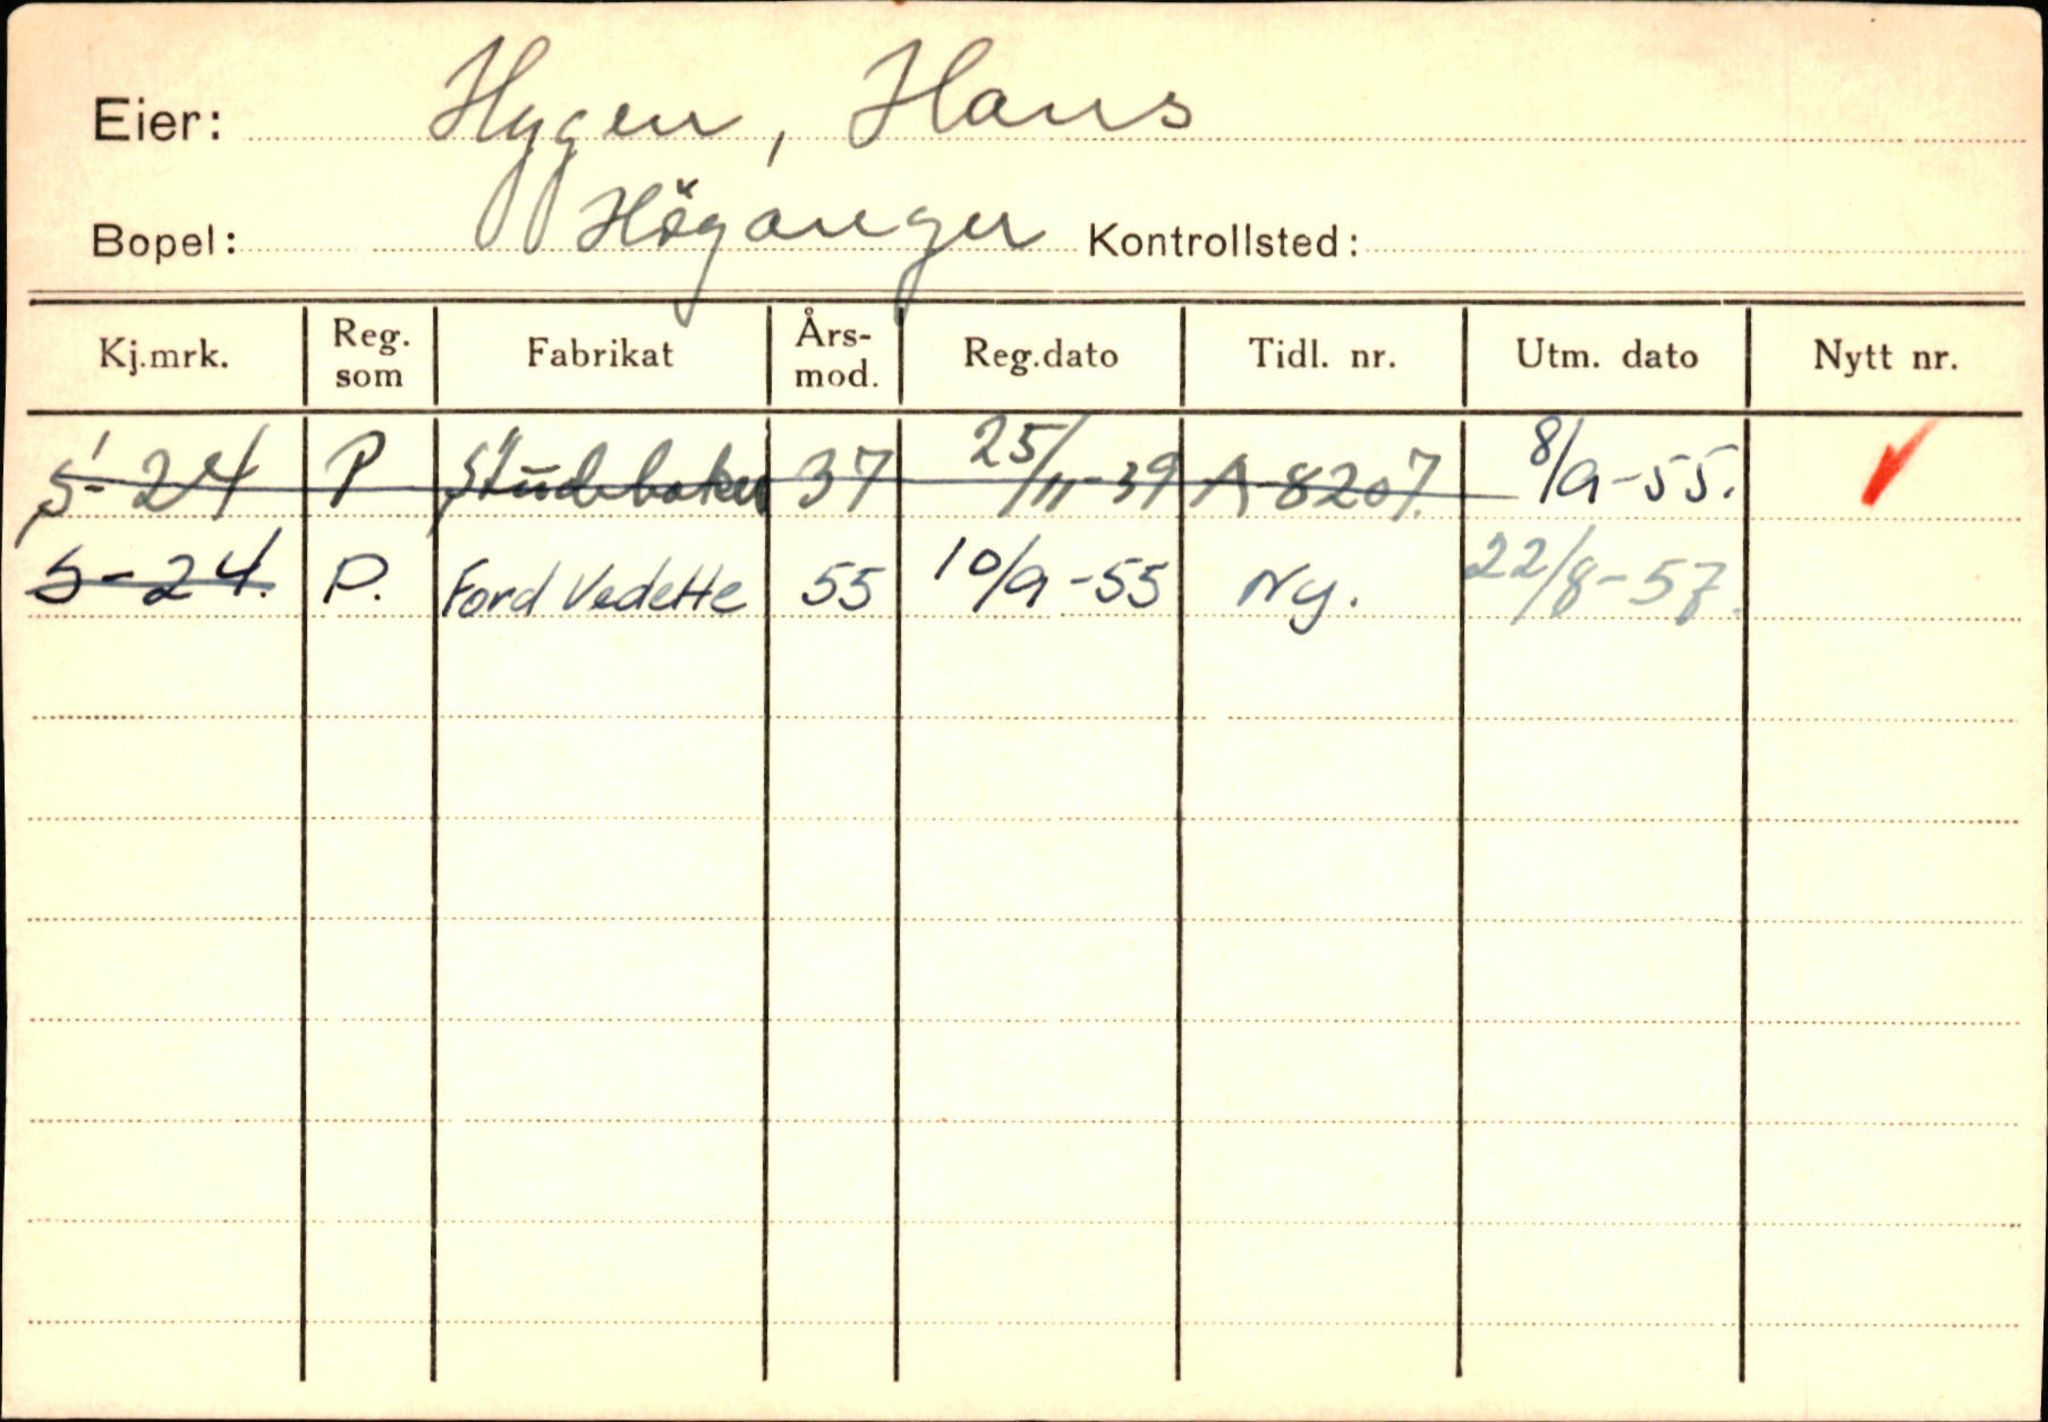 Eier: Hygen, Hans
Bopel: Höganger Kontrollsted:
Kj.mrk. Reg. som Fabrikat Års-mod. Reg.dato Tidl. nr. Utm. dato Nytt nr.
S-24 P Studebaker 37 25/11-39 A-8207. 8/9-55.
S-24. P. Ford Vedette 55 10/9-55 Ny. 22/8-57.